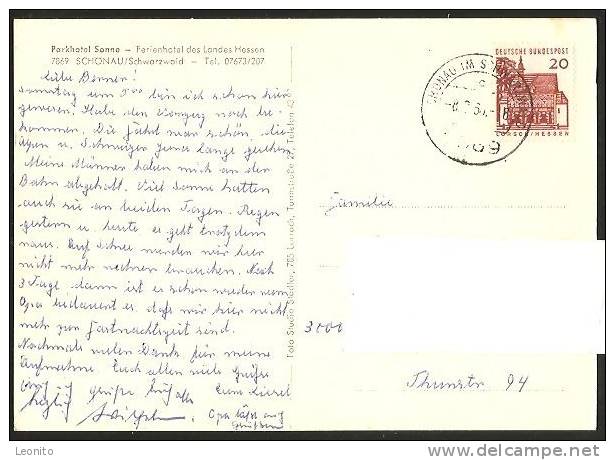 Parkhotel Sonne — Ferienhotel des Landes Hessen
7869 SCHÖNAU/Schwarzwald — Tel. 07673/207
Liebe Berner!
Samstag um 5⁰⁰ bin ich schon hier
gewesen. Habe den Vorzug noch be-
kommen. Die Fahrt war schön, die
Alpen u. Schweizer Jura lange gesehen.
Meine Männer haben mich an der
Bahn abgeholt. Viel Sonne hatten
auch sie an beiden Tagen. Regen
gestern u. heute es geht trotzdem
naus. Auf Schnee werden wir hier
nicht mehr rechnen brauchen. Noch
3 Tage, dann ist es schon wieder
Opa bedauert es, daß wir hier nicht
mehr zur Fastnachtszeit sind.
Nochmals vielen Dank für meine
Aufnahme. Euch allen viele Grüße
Grüße Euch alle Eure Liesel
herzlich
Opa läßt auch
Grüßen
Foto Studio 785 Lörrach, Turmstraße 22, Telefon
DEUTSCHE BUNDESPOST
20
LORSCH/HESSEN
SCHÖNAU IM SCHWARZW
7869
Familie
3000
Thunstr 94
Leonito
delcampe.net